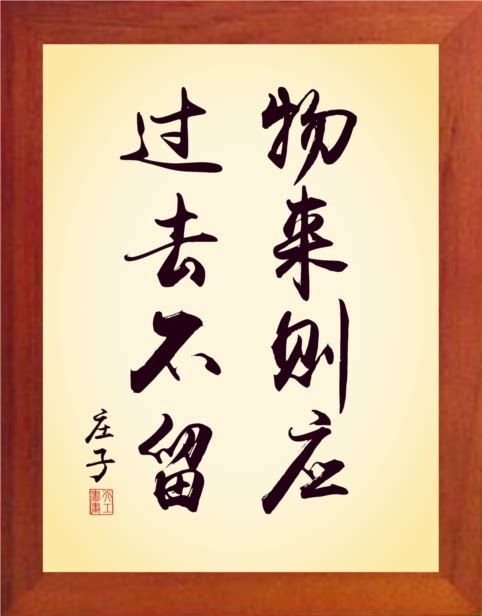 物来则应
过去不留
庄子